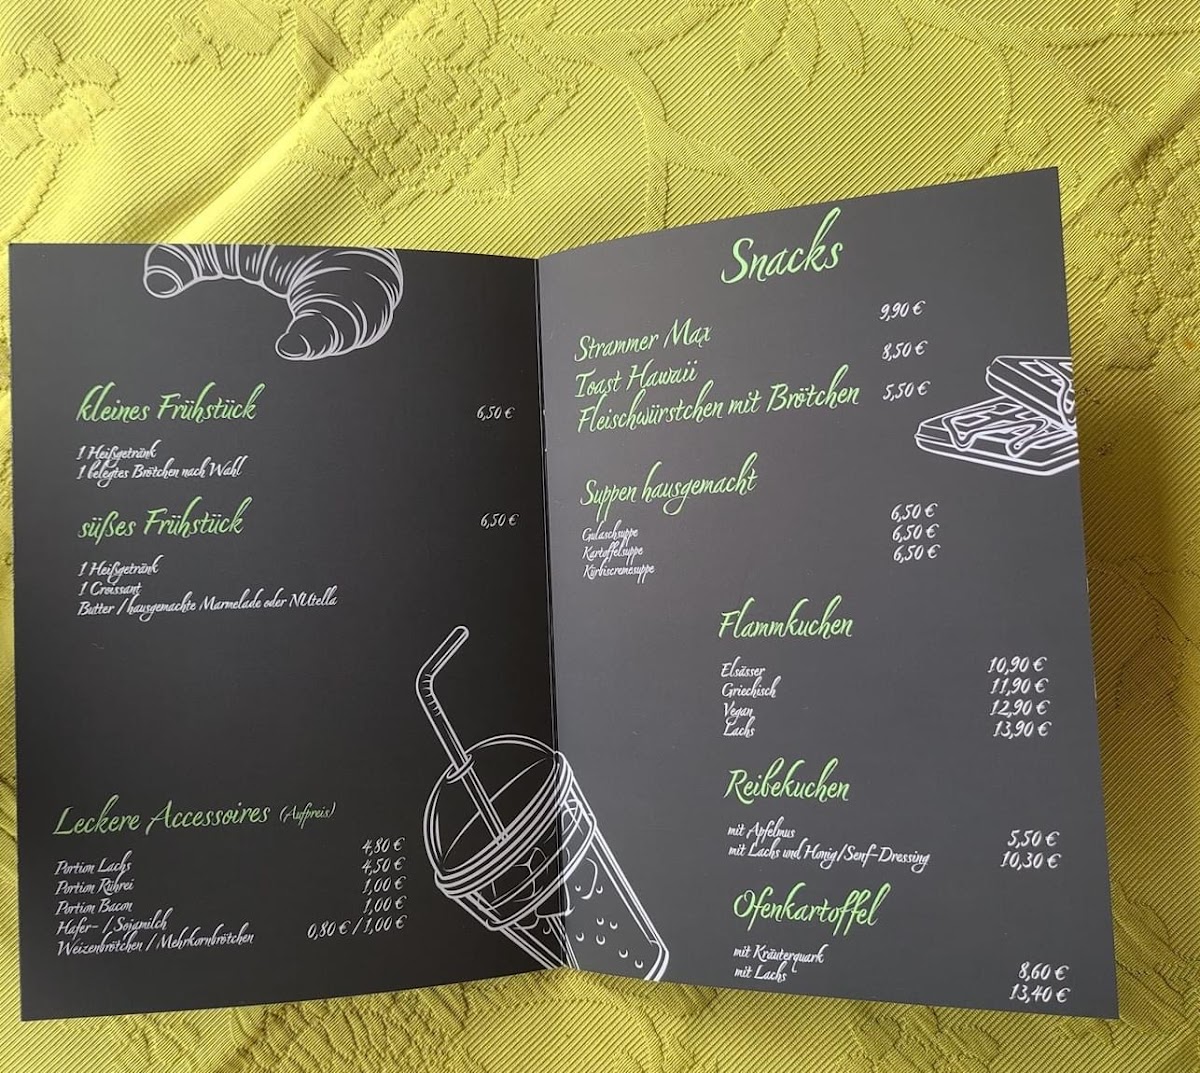 kleines Frühstück 6,50 €
1 Heißgetränk
1 belegtes Brötchen nach Wahl
süßes Frühstück 6,50 €
1 Heißgetränk
1 Croissant
Butter / hausgemachte Marmelade oder NUtella
Leckere Accessoires (Aufpreis)
Portion Lachs 4,80 €
Portion Rührei 4,50 €
Portion Bacon 1,00 €
Hafer- / Sojamilch 1,00 €
Weizenbrötchen / Mehrkornbrötchen 0,80 € / 1,00 €
Snacks
Strammer Max 9,90 €
Toast Hawaii 8,50 €
Fleischwürstchen mit Brötchen 5,50 €
Suppen hausgemacht
Gulaschsuppe 6,50 €
Kartoffelsuppe 6,50 €
Kürbiscremesuppe 6,50 €
Flammkuchen
Elsässer 10,90 €
Griechisch 11,90 €
Vegan 12,90 €
Lachs 13,90 €
Reibekuchen
mit Apfelmus 5,50 €
mit Lachs und Honig/Senf-Dressing 10,30 €
Ofenkartoffel
mit Kräuterquark 8,60 €
mit Lachs 13,40 €